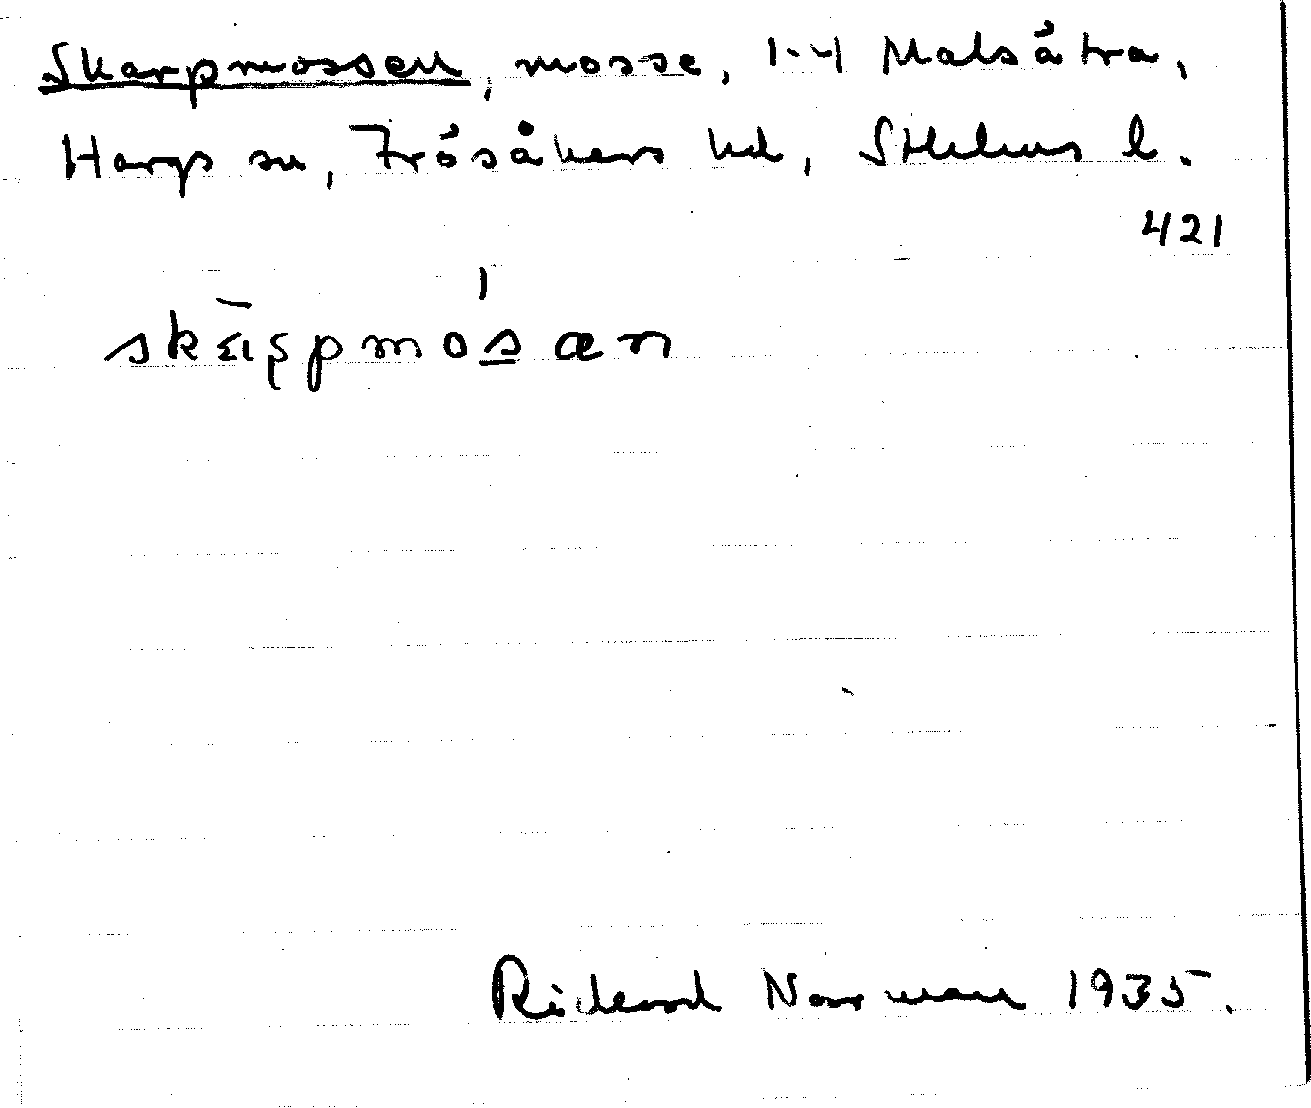 Skarpmossen, mosse, 1-4 Malsätra,
Hargs sn, Frösåkers hd, Sthlms l.
421
skarpmosan
Rickard Norrman 1935.